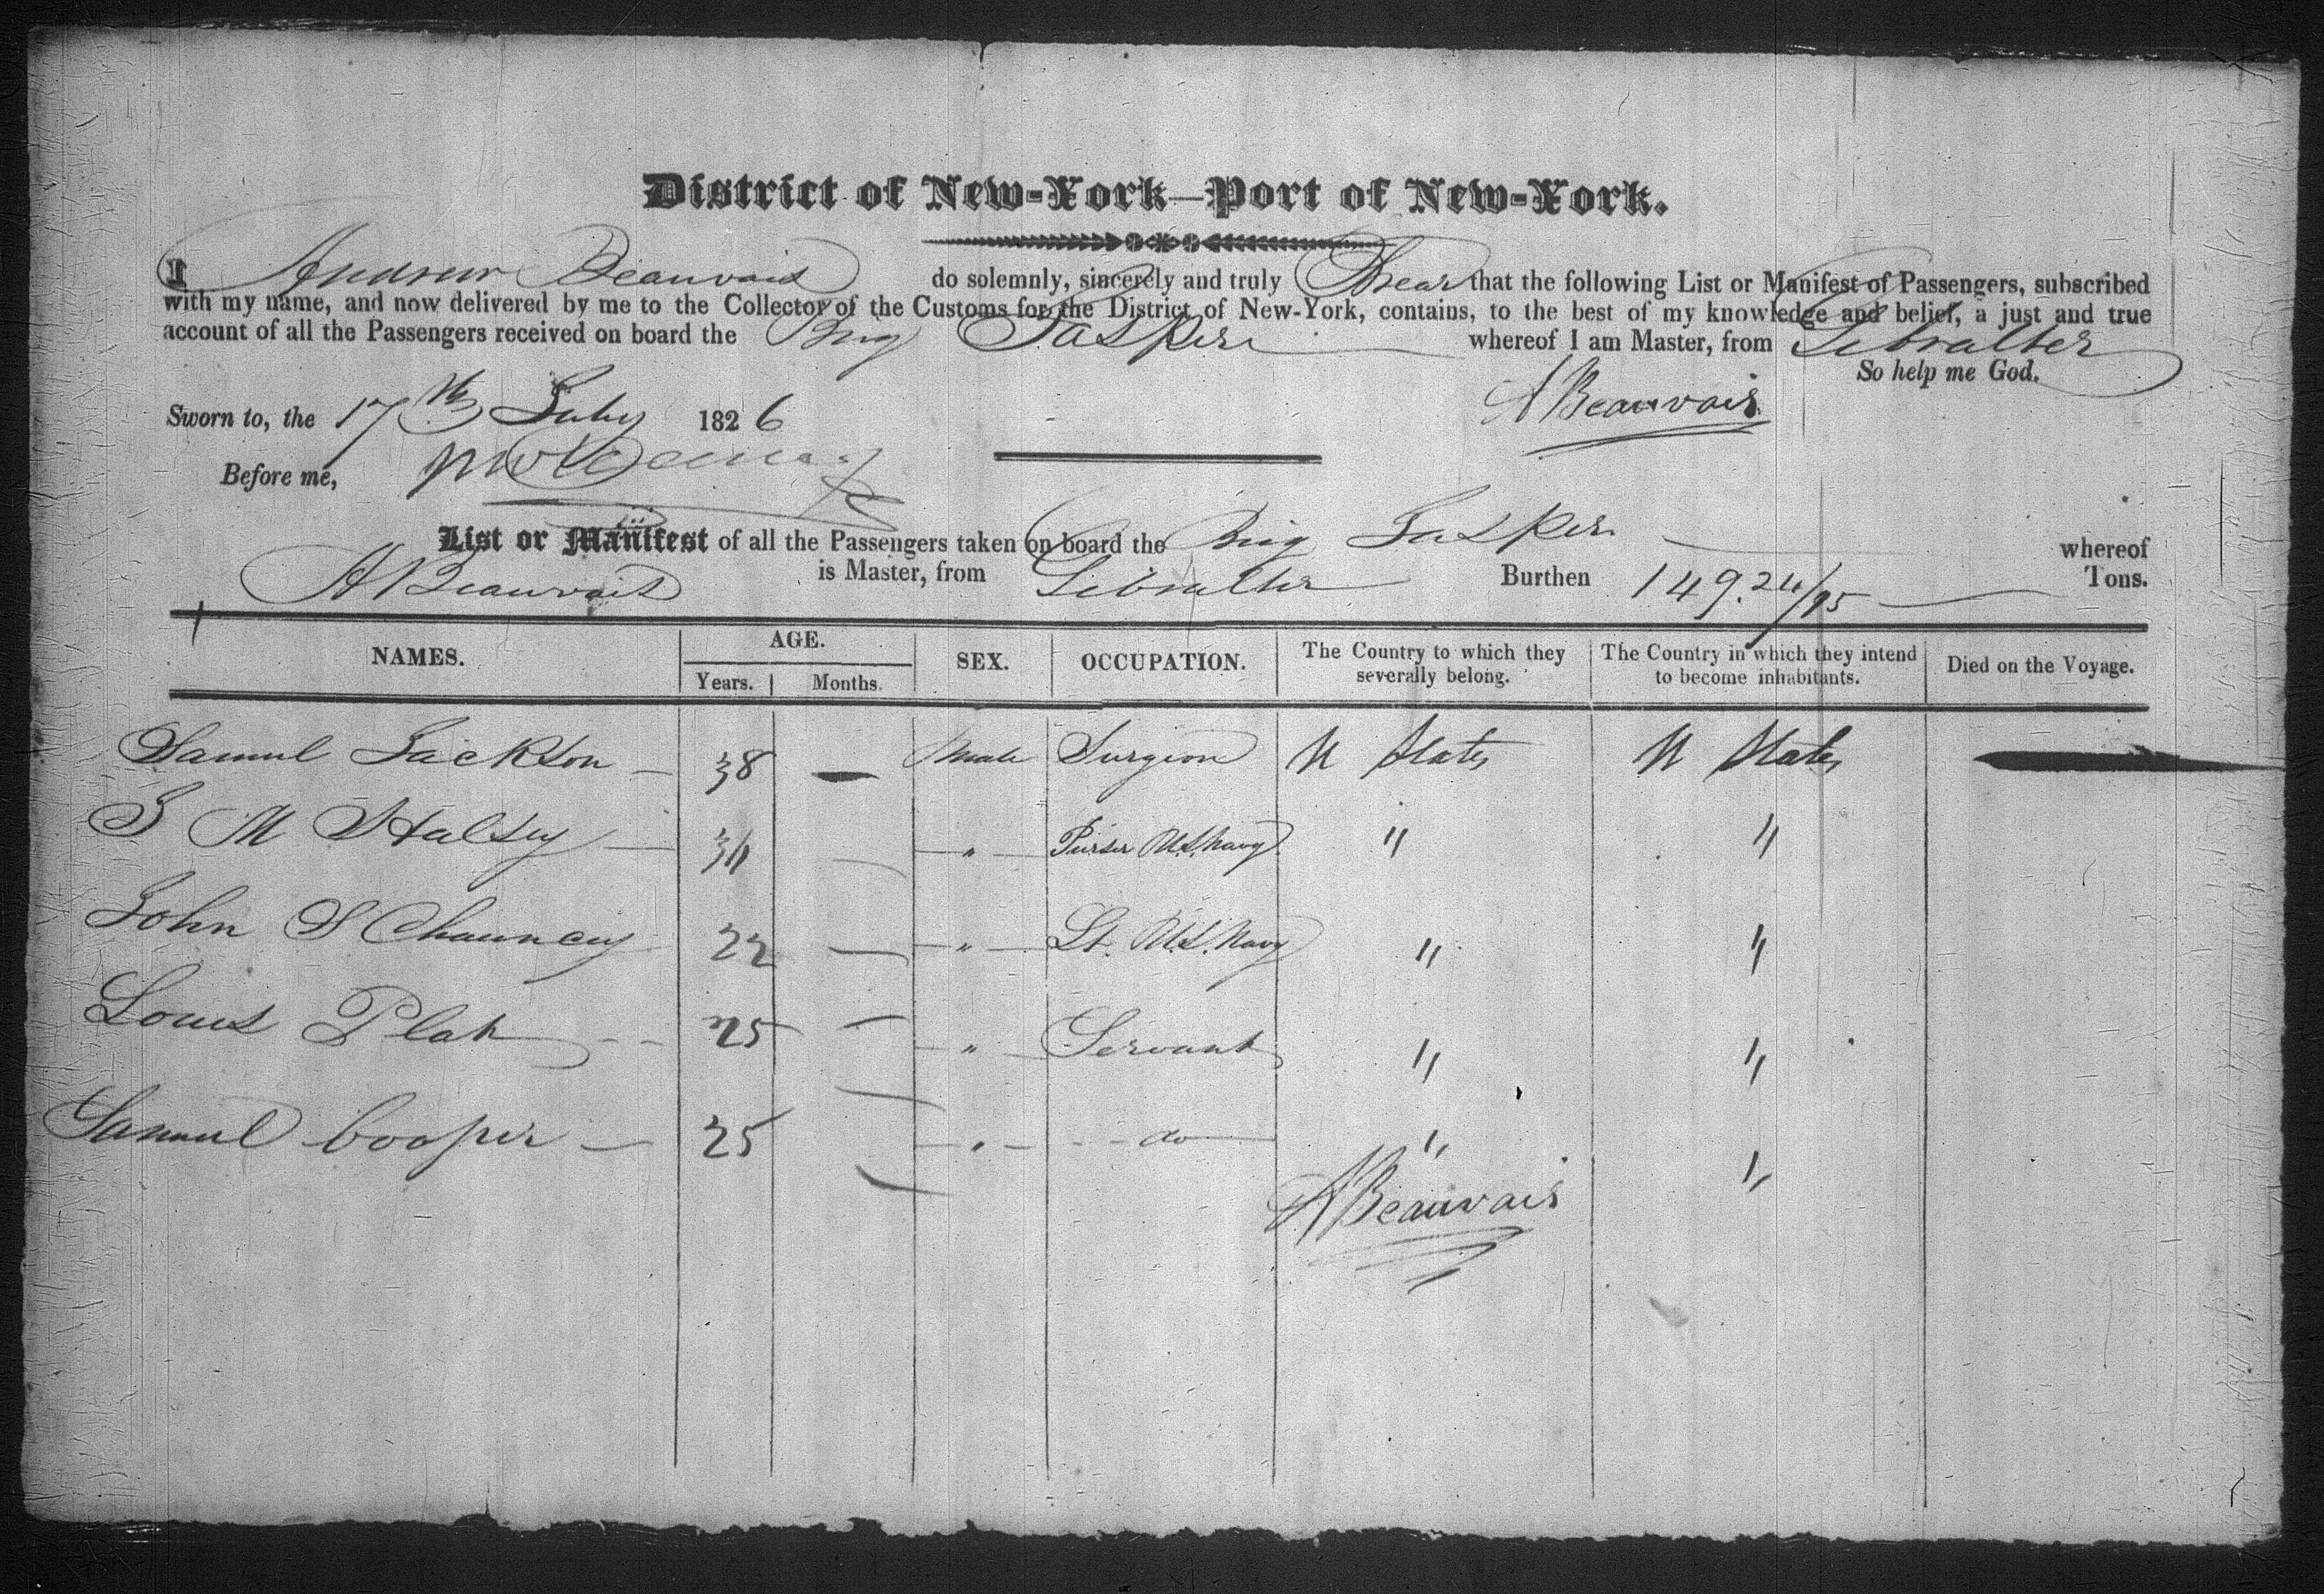 District of New-York—Port of New-York.
I Andrew Beauvais do solemnly, sincerely and truly Swear that the following List or Manifest of Passengers, subscribed
with my name, and now delivered by me to the Collector of the Customs for the District of New-York, contains, to the best of my knowledge and belief, a just and true
account of all the Passengers received on board the Brig Jasper whereof I am Master, from Gibralter
So help me God.
Sworn to, the 17th July 1826 A Beauvais
Before me,
List or Manifest of all the Passengers taken on board the Brig Jasper whereof
A Beauvais is Master, from Gibralter Burthen 149.24/95 Tons.
NAMES. AGE. SEX. OCCUPATION. The Country to which they severally belong. The Country in which they intend to become inhabitants. Died on the Voyage.
Years. Months.
Samuel Jackson — 38 — Male Surgeon U States U States —
J M Halsey — — " — Purser U.S. Navy " "
John S Chauncey 22 — — " — Lt. U.S. Navy " "
Louis Plat -- 25 — — " — Servant " "
Samuel Cooper — 25 — — " — -- do — " "
A Beauvais